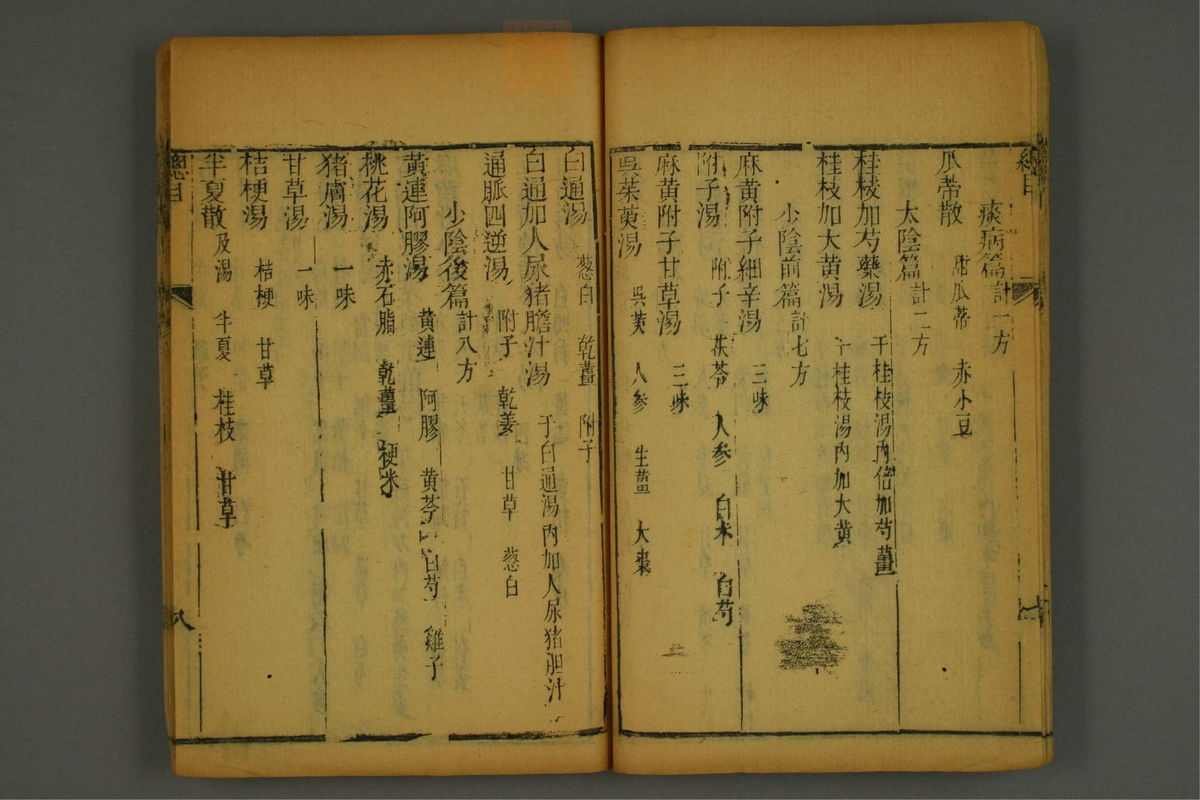 總目
痰病篇計一方
瓜蒂散 甜瓜蒂 赤小豆
太陰篇計二方
桂枝加芍藥湯 于桂枝湯內倍加芍薑
桂枝加大黃湯 于桂枝湯內加大黃
少陰前篇計七方
麻黃附子細辛湯 三味
附子湯 附子 茯苓 人参 白术 白芍
麻黃附子甘草湯 三味
吳茱萸湯 吳萸 人参 生薑 大棗
白通湯 葱白 乾薑 附子
白通加人尿猪膽汁湯 于白通湯內加人尿猪胆汁
通脈四逆湯 附子 乾姜 甘草 葱白
少陰後篇計八方
黃連阿膠湯 黄連 阿膠 黄芩 白芍 雞子
桃花湯 赤石脂 乾薑 粳米
猪膚湯 一味
甘草湯 一味
桔梗湯 桔梗 甘草
半夏散及湯 半夏 桂枝 甘草
總目
八